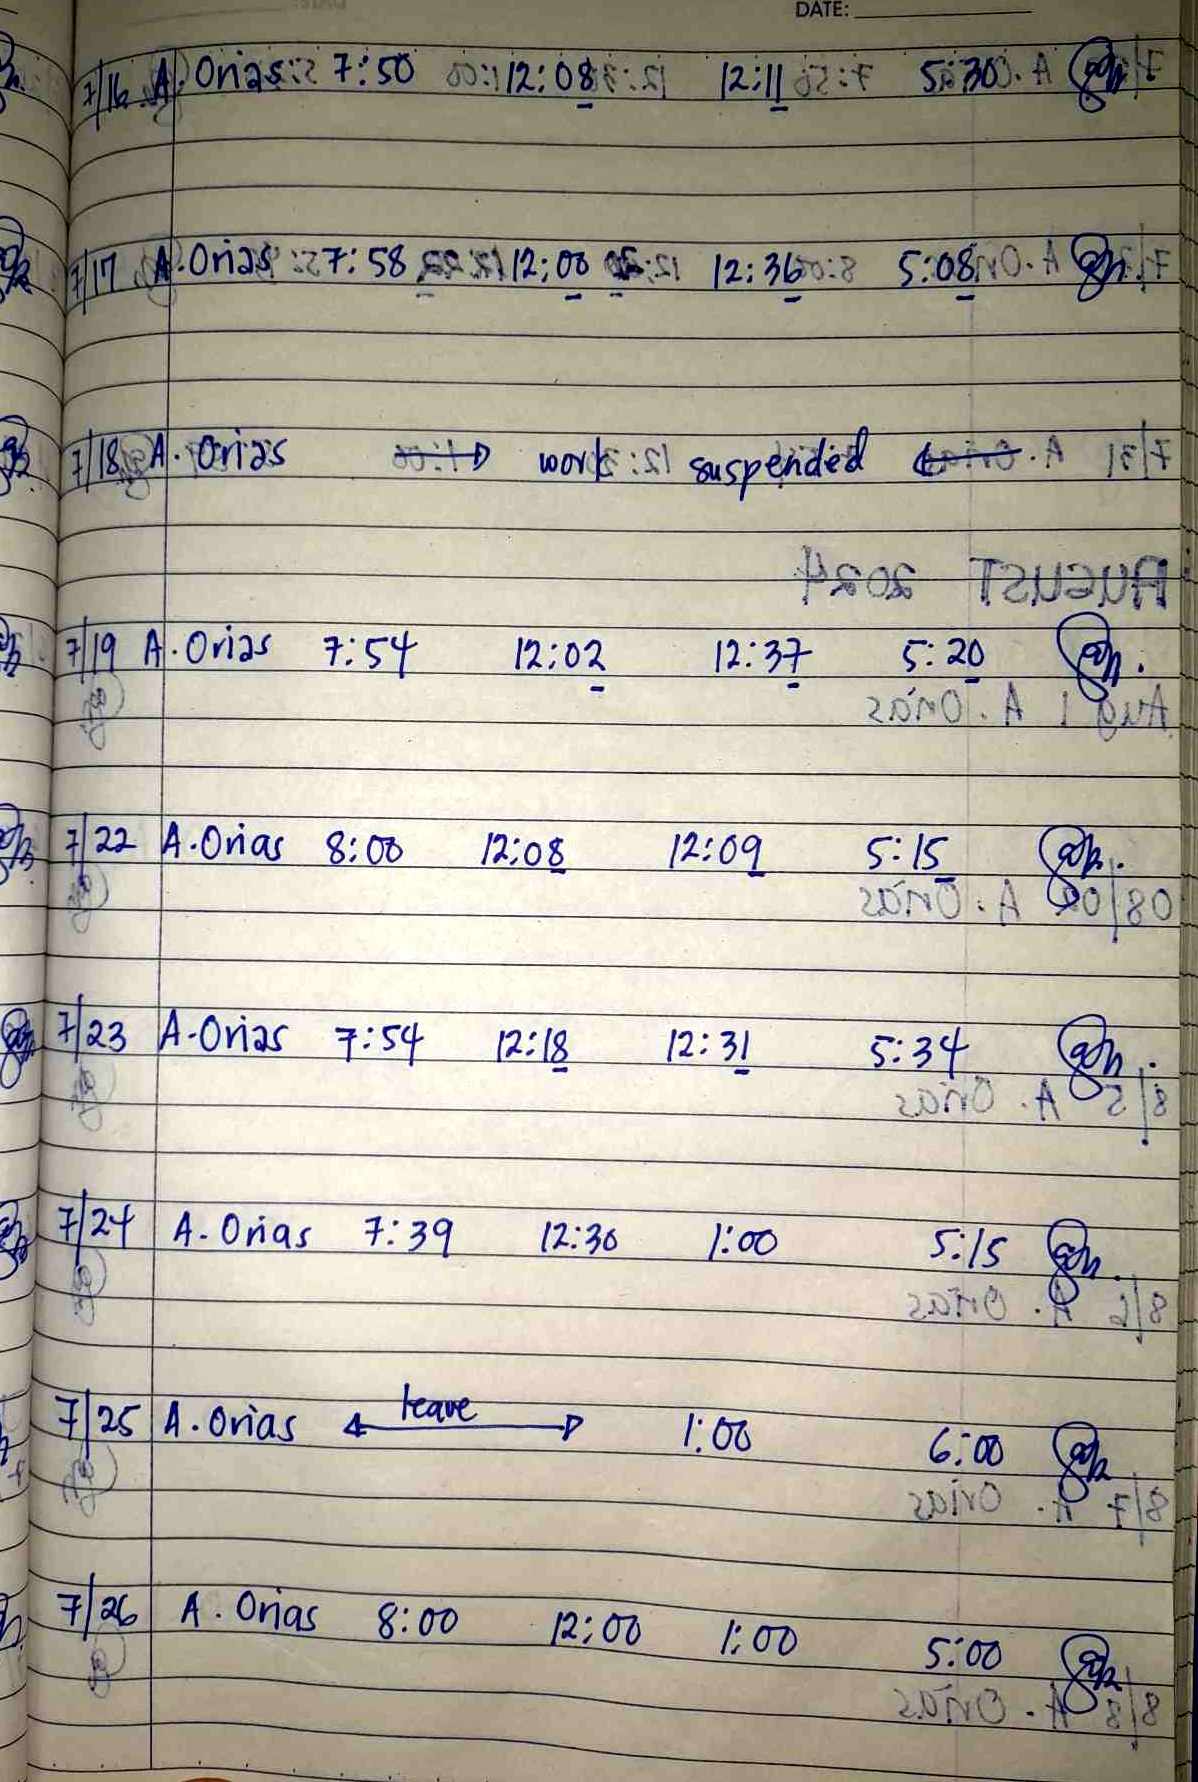 DATE:
7/16 A. Orias 7:50 12:08 12:11 5:30
7/17 A. Orias 7:58 12:00 12:36 5:08
7/18 A. Orias work suspended
7/19 A. Orias 7:54 12:02 12:37 5:20
7/22 A. Orias 8:00 12:08 12:09 5:15
7/23 A. Orias 7:54 12:18 12:31 5:34
7/24 A. Orias 7:39 12:30 1:00 5:15
7/25 A. Orias leave 1:00 6:00
7/26 A. Orias 8:00 12:00 1:00 5:00